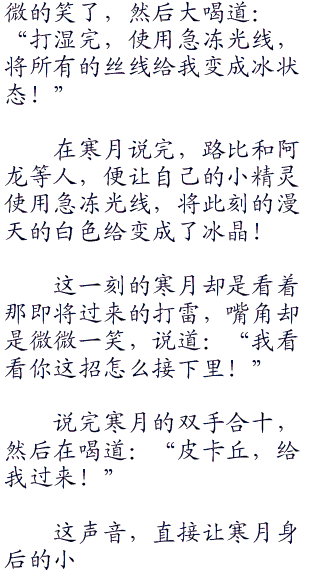 微的笑了，然后大喝道：
“打湿完，使用急冻光线，
将所有的丝线给我变成冰状
态！”
在寒月说完，路比和阿
龙等人，便让自己的小精灵
使用急冻光线，将此刻的漫
天的白色给变成了冰晶！
这一刻的寒月却是看着
那即将过来的打雷，嘴角却
是微微一笑，说道：“我看
看你这招怎么接下里！”
说完寒月的双手合十，
然后在喝道：“皮卡丘，给
我过来！”
这声音，直接让寒月身
后的小